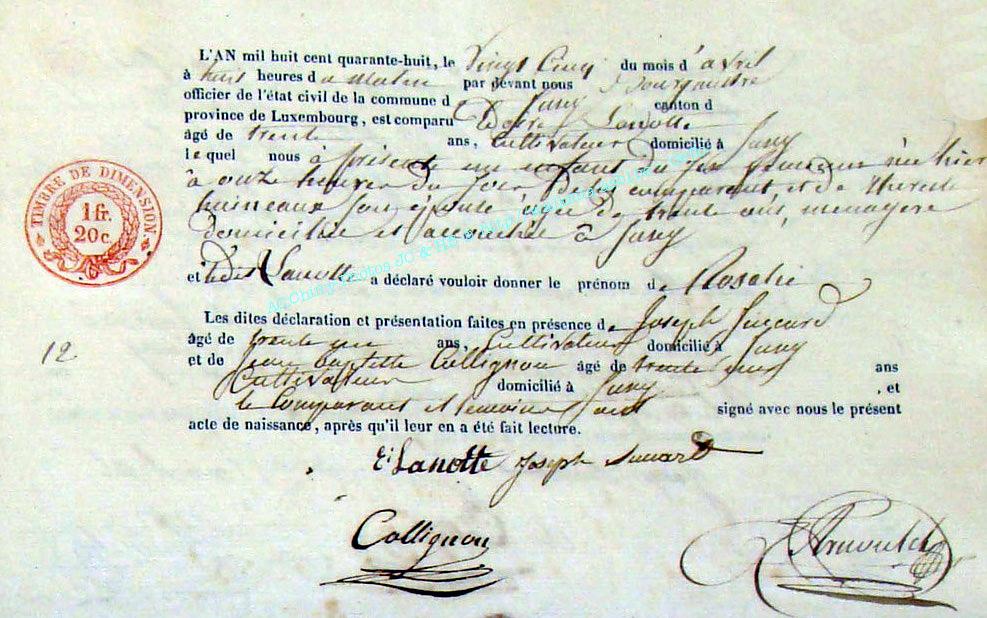 L'AN mil huit cent quarante-huit, le Vingt Cinq du mois d'avril
à huit heures du matin par devant nous Bourgmestre
officier de l'état civil de la commune d Juny canton d
province de Luxembourg, est comparu Lanotte
âgé de trente ans, Cultivateur domicilié à Juny
lequel nous à présenté un enfant du sex féminin née hier
à onze heures du soir de comparant et de Thérèse
son épouse âgée de trente ans, menagere
domiciliée et accouchée à Juny
et ledit Lanotte a déclaré vouloir donner le prénom de Rosalie
Les dites déclaration et présentation faites en présence de Joseph
âgé de trente un ans, Cultivateur domicilié à Juny
et de Jean Baptiste Collignon âgé de trente ans
Cultivateur domicilié à Juny , et
le Comparant et temoins ont signé avec nous le présent
acte de naissance, après qu'il leur en a été fait lecture.
TIMBRE DE DIMENSION.
1 fr.
20 c.
12
E Lanotte Joseph
Collignon